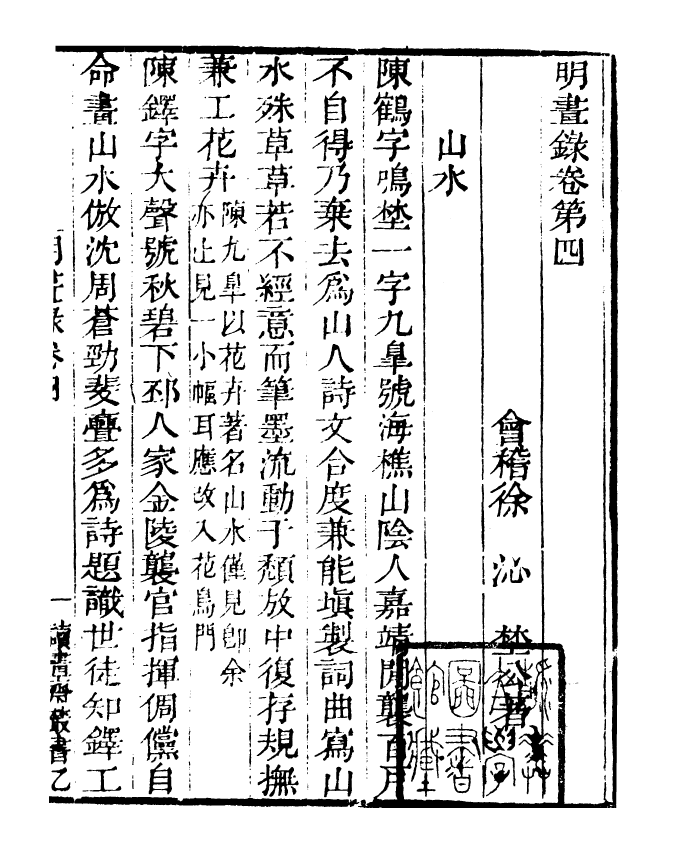 明畫錄卷第四
會稽徐 沁 埜公 著
山水
陳鶴字鳴埜一字九臯號海樵山陰人嘉靖間襲百戶
不自得乃棄去爲山人詩文合度兼能塡製詞曲寫山
水殊草草若不經意而筆墨流動于頹放中復存規撫
兼工花卉陳九臯以花卉著名山水僅見卽余
亦止見一小幅耳應改入花鳥門
陳鐸字大聲號秋碧下邳人家金陵襲官指揮倜儻自
命畫山水倣沈周蒼勁斐亹多爲詩題識世徒知鐸工
明畫錄卷四
一
讀畫齋叢書乙
圖書
館藏